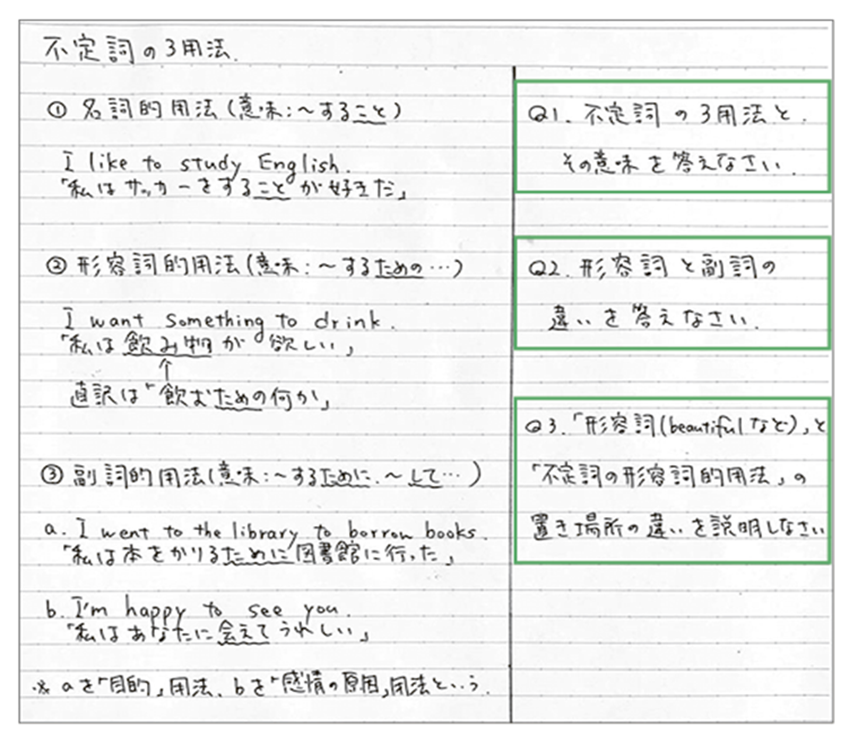 不定詞の3用法.
① 名詞的用法(意味:～すること)
I like to study English.
「私はサッカーをすることが好きだ」
② 形容詞的用法(意味:～するための…)
I want something to drink.
「私は飲み物が欲しい」
↑
直訳は「飲むための何か」
③ 副詞的用法(意味:～するために.～して…)
a. I went to the library to borrow books.
「私は本をかりるために図書館に行った」
b. I'm happy to see you.
「私はあなたに会えてうれしい」
※ aを「目的」用法、bを「感情の原因」用法という.
Q1. 不定詞の3用法と.
その意味を答えなさい.
Q2. 形容詞と副詞の
違いを答えなさい.
Q3.「形容詞(beautifulなど)」と
「不定詞の形容詞的用法」の
置き場所の違いを説明しなさい